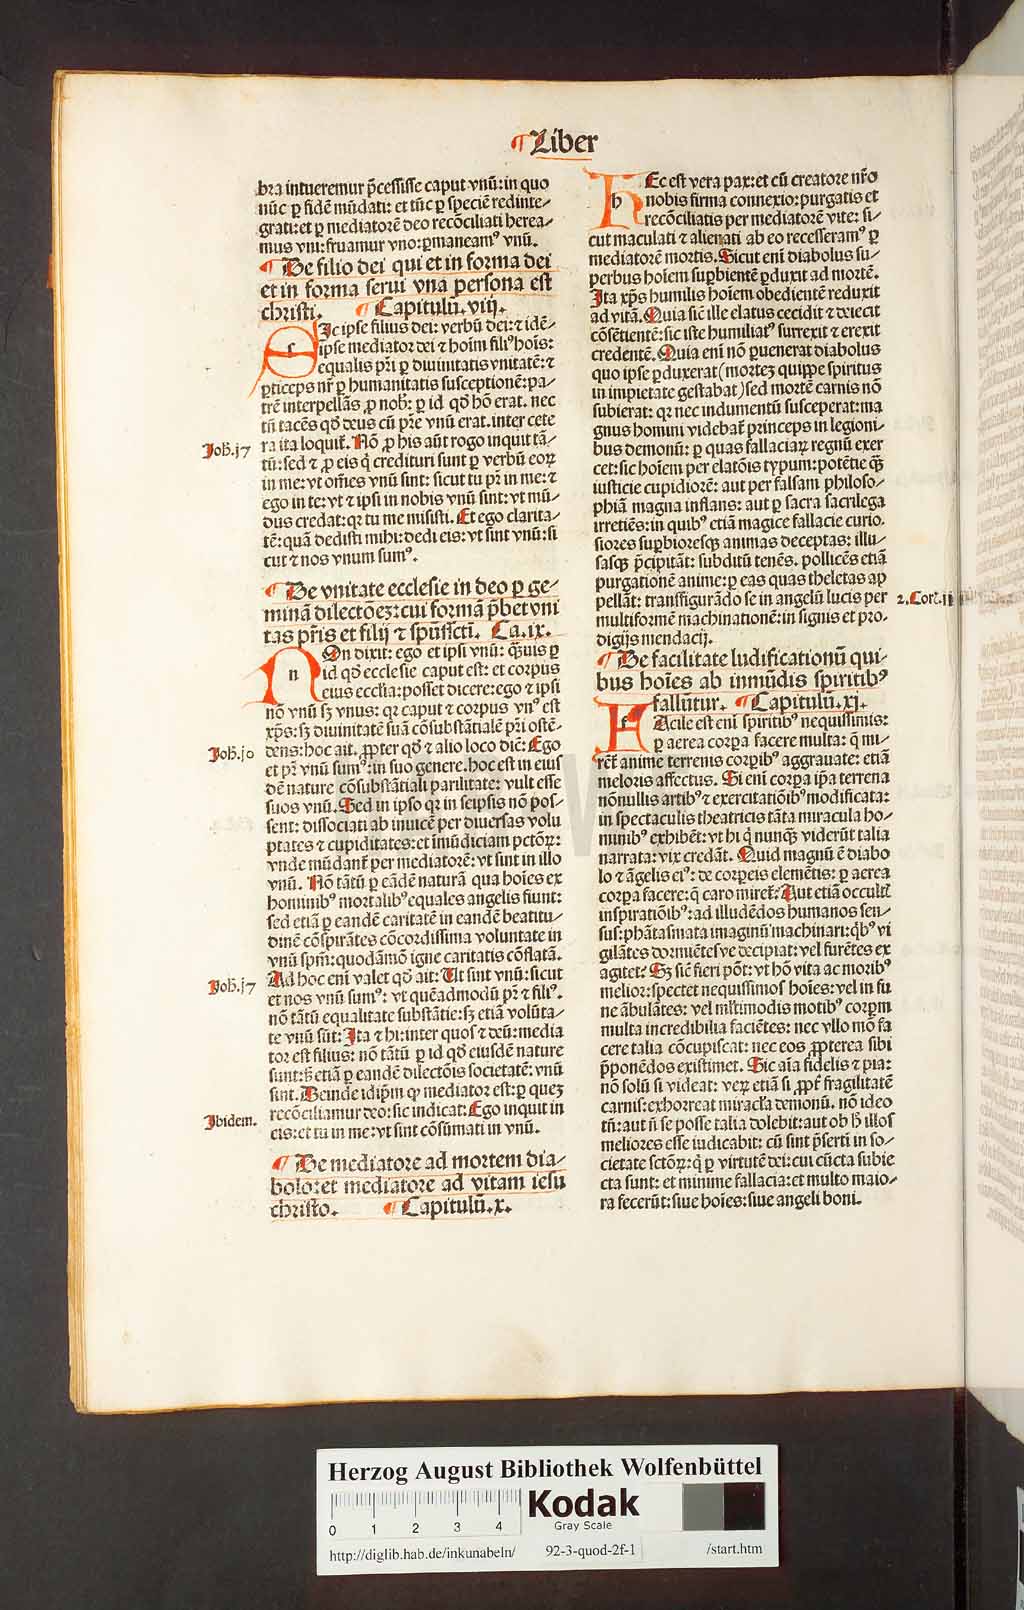 ¶ Liber
bra intueremur p̄cessisse caput vnū: in quo
nūc ꝑ fidē mūdati: et tūc ꝑ speciē redinte⸗
grati: et ꝑ mediatorē deo recōciliati herea⸗
mus vni: fruamur vno: ꝑmaneamꝰ vnū.
¶ De filio dei qui et in forma dei
et in forma serui vna persona est
christi. ¶ Capitulū. viij.
Sic ipse filius dei: verbū dei: ⁊ idē⸗
ipse mediator dei ⁊ hoīm filiꝰ hoīs:
equalis pr̄i ꝑ diuinitatis vnitatē: ⁊
ꝑticeps nr̄ ꝑ humanitatis susceptionē: pa⸗
trē interpellās ꝓ nob̄: ꝑ id qđ hō erat. nec
tn̄ tacēs qđ deus cū pr̄e vnū erat. inter cete
ra ita loquit̄. Nō ꝓ his aūt rogo inquit tā⸗
tū: sed ⁊ ꝓ eis q̄ credituri sunt ꝑ verbū eoꝝ
in me: vt om̄es vnū sint: sicut tu pr̄ in me: ⁊
ego in te: vt ⁊ ipsi in nobis vnū sint: vt mū⸗
dus credat: qꝛ tu me misisti. Et ego clarita⸗
tē: quā dedisti mihi: dedi eis: vt sint vnū: si
cut ⁊ nos vnum sumꝰ.
Joh̄. j7
¶ De vnitate ecclesie in deo ꝑ ge⸗
minā dilectōeꝫ: cui formā p̄bet vni
tas pr̄is et filij ⁊ spūssctī. Ca. ix.
Non dixit: ego et ipsi vnū: q̄uis ꝑ
id qđ ecclesie caput est: et corpus
eius eccl̄ia: posset dicere: ego ⁊ ipsi
nō vnū sꝫ vnus: qꝛ caput ⁊ corpus vnꝰ est
xp̄s: sꝫ diuinitatē suā cōsubstātialē pr̄i ostē⸗
dens: hoc ait. ꝓpter qđ ⁊ alio loco dic̄: Ego
et pr̄ vnū sumꝰ: in suo genere. hoc est in eius
dē nature cōsubstātiali parilitate: vult esse
suos vnū. Sed in ipso qꝛ in seipsis nō pos⸗
sent: dissociati ab inuicē per diuersas volu
ptates ⁊ cupiditates: et imūdiciam pctōꝝ:
vnde mūdant̄ per mediatorē: vt sint in illo
vnū. Nō tātū ꝑ eādē naturā qua hoīes ex
hominibꝰ mortalibꝰ equales angelis fiunt:
sed etiā ꝑ eandē caritatē in eandē beatitu⸗
dinē cōspirātes cōcordissima voluntate in
vnū spm̄: quodāmō igne caritatis cōflatā.
Ad hoc eni valet qđ ait: Ut sint vnū: sicut
et nos vnū sumꝰ: vt quēadmodū pr̄ ⁊ filiꝰ.
nō tātū equalitate substātie: sꝫ etiā volūta⸗
te vnū sūt: Ita ⁊ hi: inter quos ⁊ deū: media
tor est filius: nō tātū ꝑ id qđ eiusdē nature
sunt: h̄ etiā ꝑ eandē dilectōis societatē: vnū
sint. Deinde idip̄m ꝙ mediator est: ꝑ queꝫ
recōciliamur deo: sic indicat: Ego inquit in
eis: et tu in me: vt sint cōsūmati in vnū.
Joh̄. jo
Joh̄. j7
Ibidem.
¶ De mediatore ad mortem dia⸗
bolo: et mediatore ad vitam iesu
christo. ¶ Capitulū. x.
Hec est vera pax: et cū creatore nr̄o
nobis firma connexio: purgatis et
recōciliatis per mediatorē vite: si⸗
cut maculati ⁊ alienati ab eo recesseramꝰ ꝑ
mediatorē mortis. Sicut eni diabolus su⸗
perbus hoīem suꝑbientē ꝑduxit ad mortē.
Ita xp̄s humilis hoīem obedientē reduxit
ad vitā. Quia sic̄ ille elatus cecidit ⁊ deiecit
cōsētientē: sic iste humiliatꝰ surrexit ⁊ erexit
credentē. Quia eni nō ꝑuenerat diabolus
quo ipse ꝑduxerat (morteꝫ quippe spiritus
in impietate gestabat) sed mortē carnis nō
subierat: qꝛ nec indumentū susceperat: ma
gnus homini videbat̄ princeps in legioni⸗
bus demonū: ꝑ quas fallaciaꝝ regnū exer
cet: sic hoīem per elatōis typum: potētie q̄ꝫ
iusticie cupidiorē: aut per falsam philoso⸗
phiā magna inflans: aut ꝑ sacra sacrilega
irretiēs: in quibꝰ etiā magice fallacie curio⸗
siores suꝑbioresqꝫ animas deceptas: illu⸗
sasqꝫ p̄cipitāt: subditū tenēs. pollicēs etiā
purgationē anime: ꝑ eas quas theletas ap
pellāt: transfigurādo se in angelū lucis per
multiformē machinationē: in signis et pro⸗
digijs mendacij.
2. Cor. jj
¶ De facilitate ludificationū qui⸗
bus hoīes ab inmūdis spiritibꝰ
fallūtur. ¶ Capitulū. xj.
Facile est eni spiritibꝰ nequissimis:
ꝑ aerea corꝑa facere multa: q̄ mi⸗
rēt̄ anime terrenis corꝑibꝰ aggrauate: etiā
melioris affectus. Si eni corꝑa ip̄a terrena
nōnullis artibꝰ ⁊ exercitatiōibꝰ modificata:
in spectaculis theatricis tāta miracula ho⸗
minibꝰ exhibēt: vt hi q̄ nunqꝫ viderūt talia
narrata: vix credāt. Quid magnū ē diabo
lo ⁊ āgelis eiꝰ: de corꝑeis elemētis: ꝑ aerea
corꝑa facere: q̄ caro miret̄: Aut etiā occultꝭ
inspiratiōibꝰ: ad illudēdos humanos sen⸗
sus: phātasmata imaginū machinari: q̄bꝰ vi
gilātes dormiētesve decipiat: vel furētes ex
agitet: Sꝫ sic̄ fieri pōt: vt hō vita ac moribꝰ
melior: spectet nequissimos hoīes: vel in fu
ne ābulātes: vel ml̄timodis motibꝰ corpꝝ
multa incredibilia faciētes: nec vllo mō fa
cere talia cōcupiscat: nec eos ꝓpterea sibi
p̄ponēdos existimet. Sic aīa fidelis ⁊ pia:
nō solū si videat: veꝝ etiā si ꝓpt̄ fragilitatē
carnis: exhorreat miracl̄a demonū. nō ideo
tn̄: aut n̄ se posse talia dolebit: aut ob h̄ illos
meliores esse iudicabit: cū sint p̄serti in so⸗
cietate sctōꝝ: q̄ ꝑ virtutē dei: cui cūcta subie
cta sunt: et minime fallacia: et multo maio⸗
ra fecerūt: siue hoīes: siue angeli boni.
Herzog August Bibliothek Wolfenbüttel
Kodak
Gray Scale
0 1 2 3 4
http://diglib.hab.de/inkunabeln/ 92-3-quod-2f-1 /start.htm